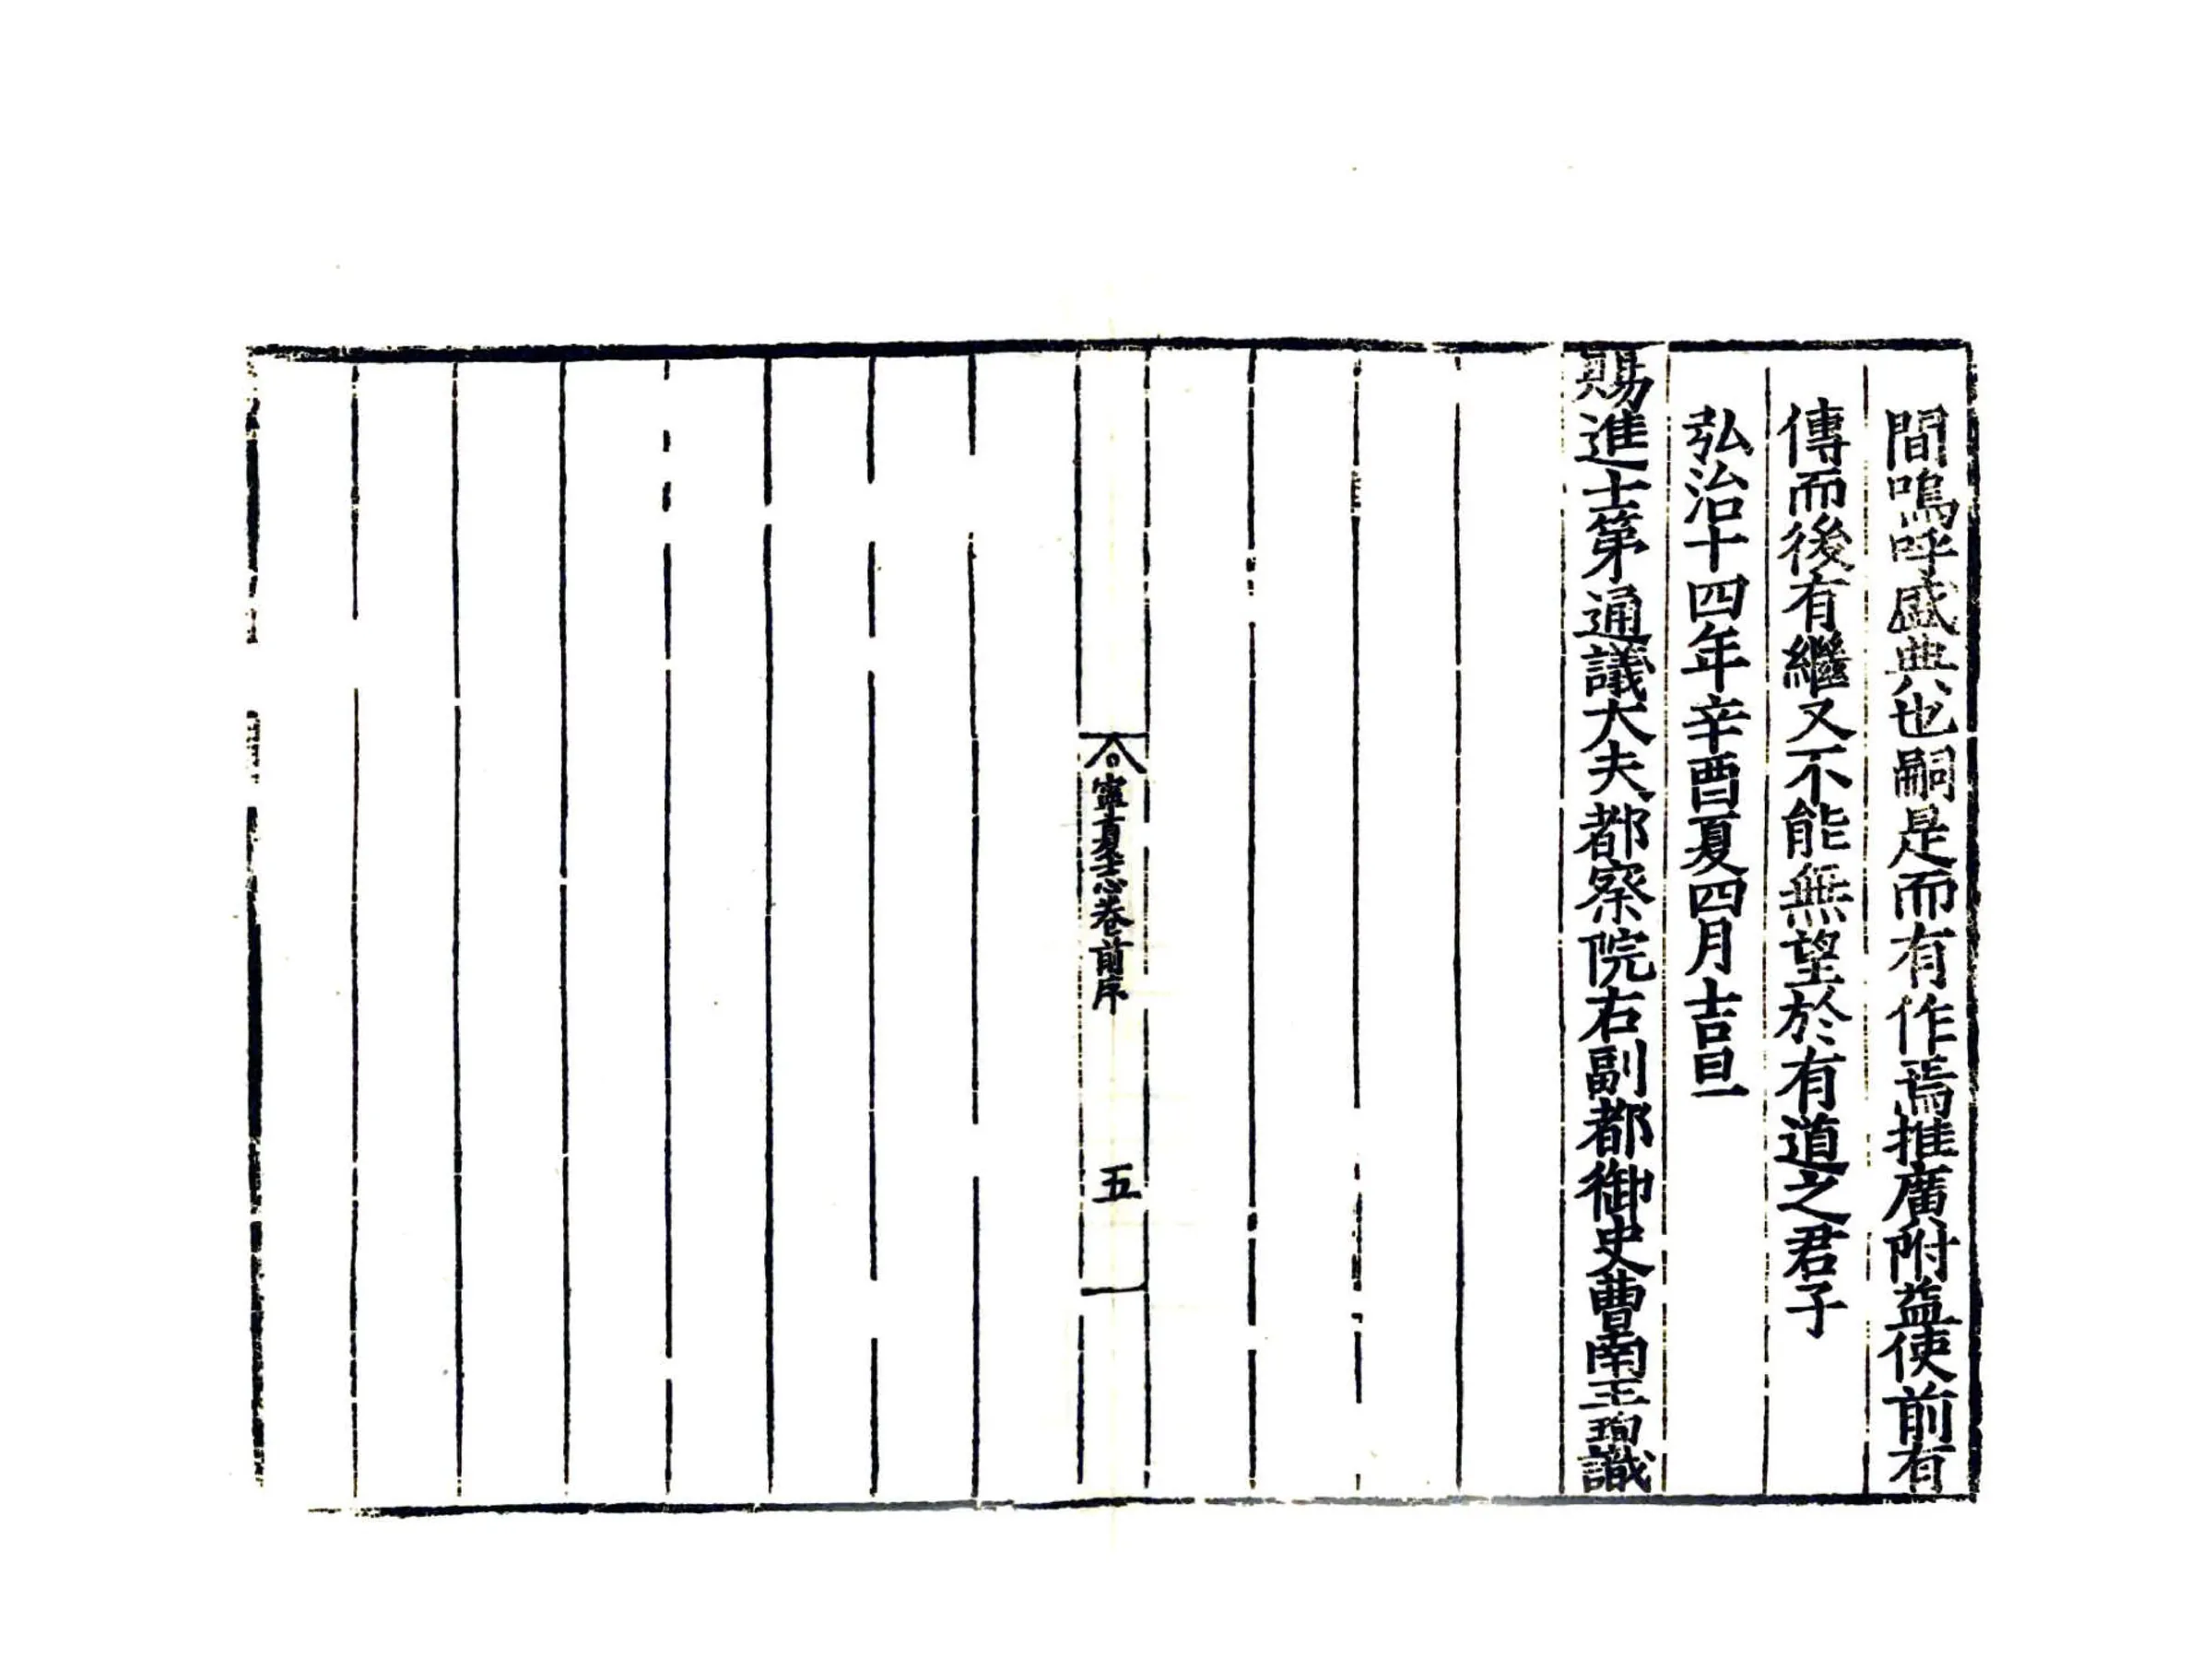 間嗚呼盛典也嗣是而有作焉推廣附益使前有
傳而後有繼又不能無望於有道之君子
弘治十四年辛酉夏四月吉旦
賜進士第通議大夫都察院右副都御史曹南王珣識
寧夏志卷前序
五